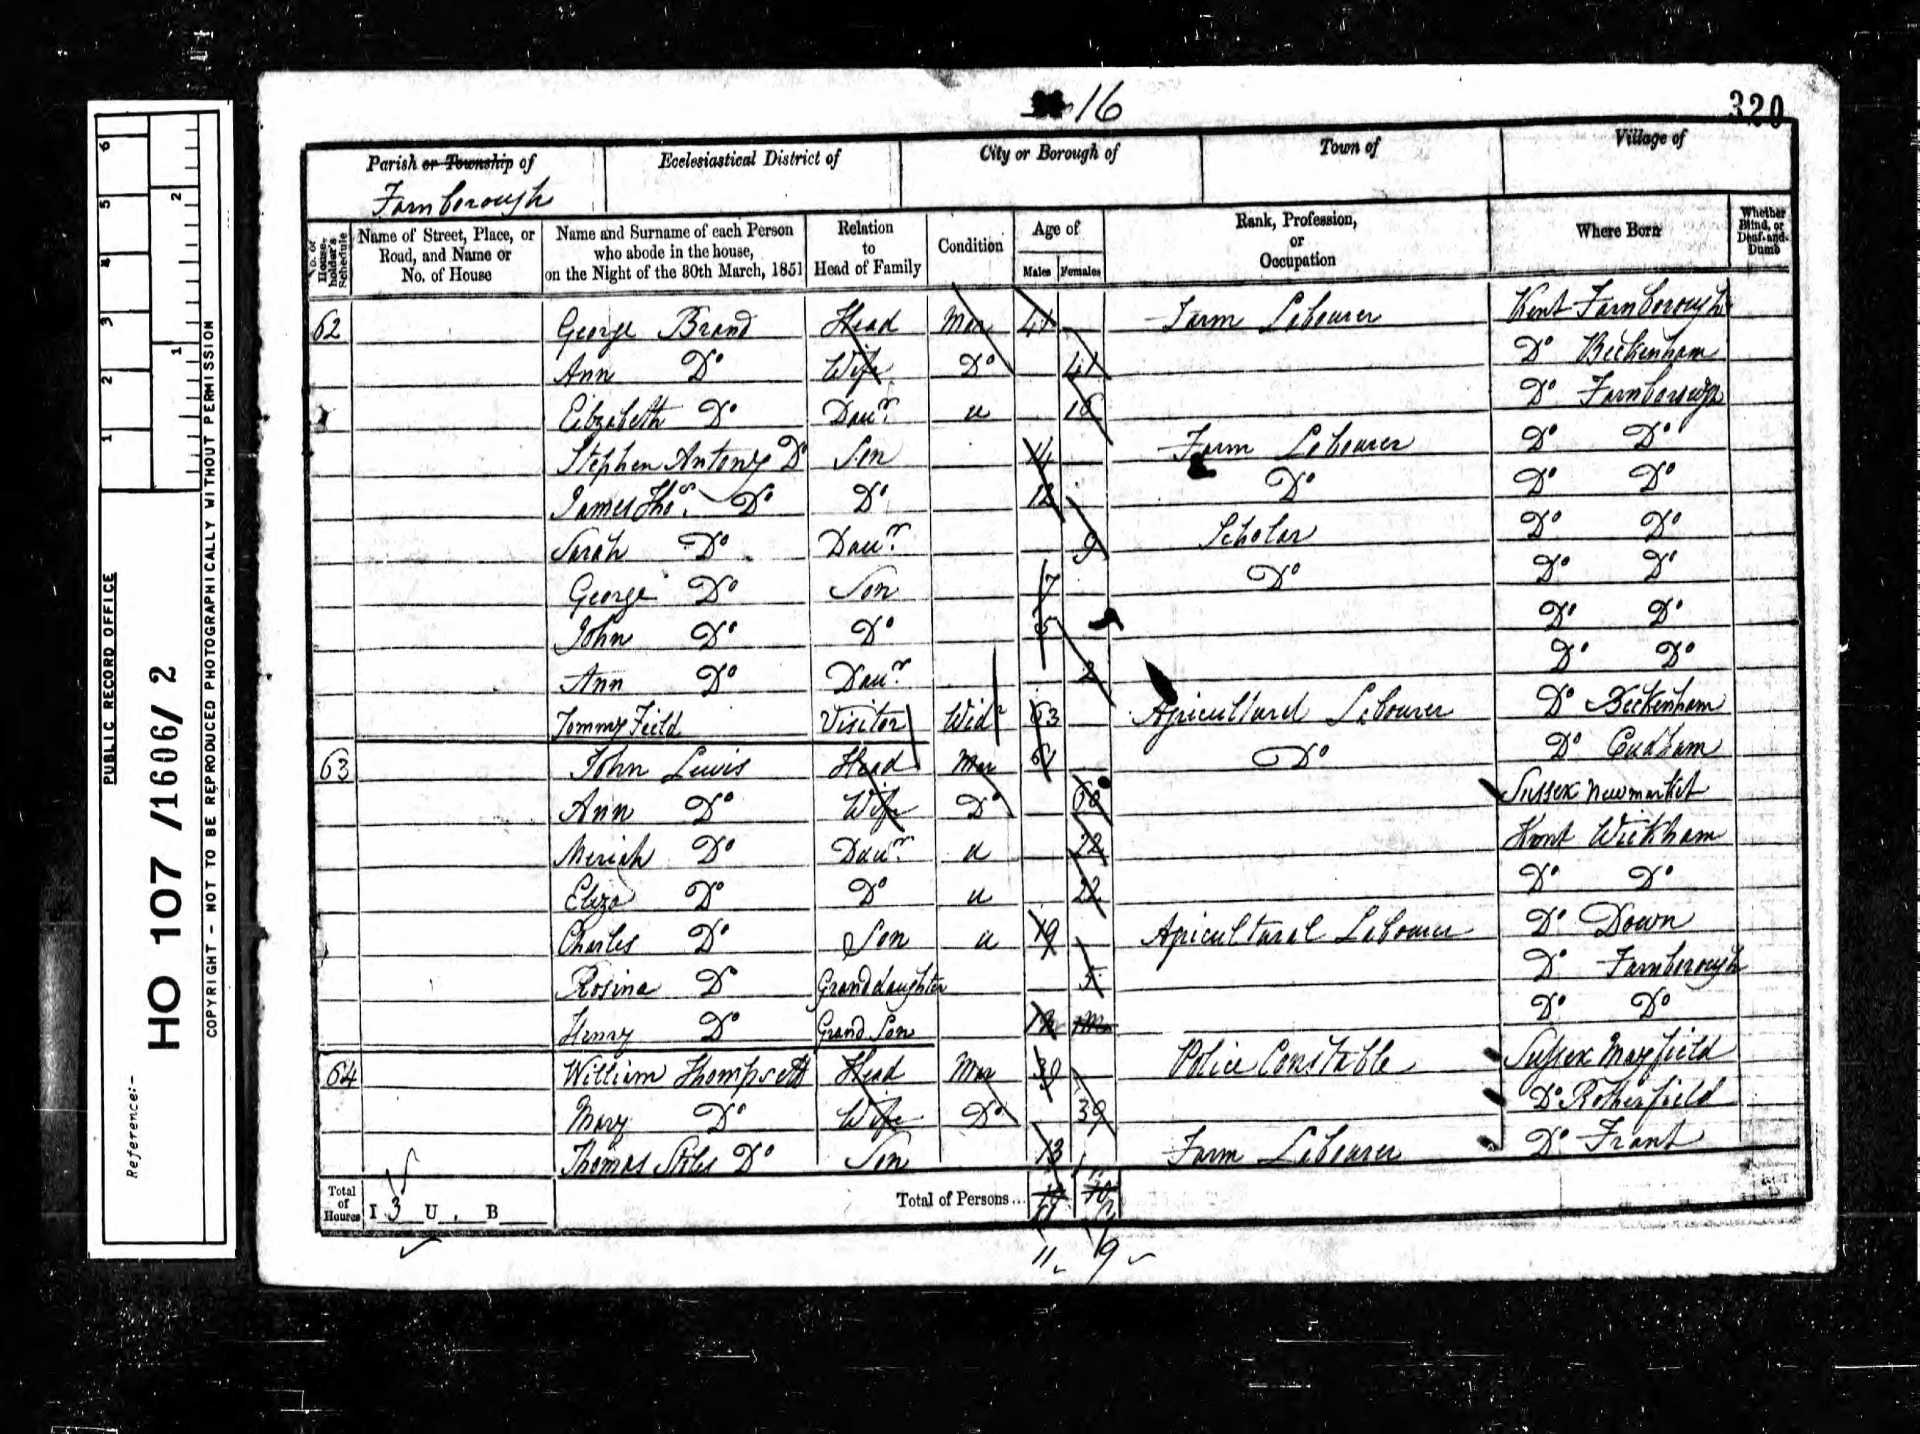 16
320
Parish or Township of
Farnborough
Ecclesiastical District of
City or Borough of
Town of
Village of
No. of House-holder's Schedule
Name of Street, Place, or Road, and Name or No. of House
Name and Surname of each Person who abode in the house, on the Night of the 30th March, 1851
Relation to Head of Family
Condition
Age of
Males Females
Rank, Profession, or Occupation
Where Born
Whether Blind, or Deaf-and-Dumb
62 George Brand Head Mar 41 Farm Labourer Kent Farnborough
Ann Do Wife Do 41 Do Beckenham
Elizabeth Do Daur. u 16 Do Farnborough
Stephen Antony Do Son 14 Farm Labourer Do Do
James Thos. Do Do 12 Do Do Do
Sarah Do Daur. 9 Scholar Do Do
George Do Son 7 Do Do Do
John Do Do 5 Do Do
Ann Do Daur. 2 Do Do
Tommy Field Visitor Widr 63 Agricultural Labourer Do Beckenham
63 John Lewis Head Mar 61 Do Do Cudham
Ann Do Wife Do 60 Sussex Newmarket
Meriah Do Daur. u 22 Kent Wickham
Eliza Do Do u 22 Do Do
Charles Do Son u 19 Agricultural Labourer Do Down
Rosina Do Granddaughter 5 Do Farnborough
Henry Do Grand Son Do Do
64 William Thompsett Head Mar 30 Police Constable Sussex Mayfield
Mary Do Wife Do 39 Do Rotherfield
Thomas Stiles Do Son 13 Farm Labourer Do Frant
Total of Houses
I 3 U . B
Total of Persons...
11 9
PUBLIC RECORD OFFICE
Reference:-
HO 107 /1606/ 2
COPYRIGHT - NOT TO BE REPRODUCED PHOTOGRAPHICALLY WITHOUT PERMISSION
1 2 3 4 5 6
1 2